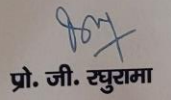 प्रो. जी. रघुरामा